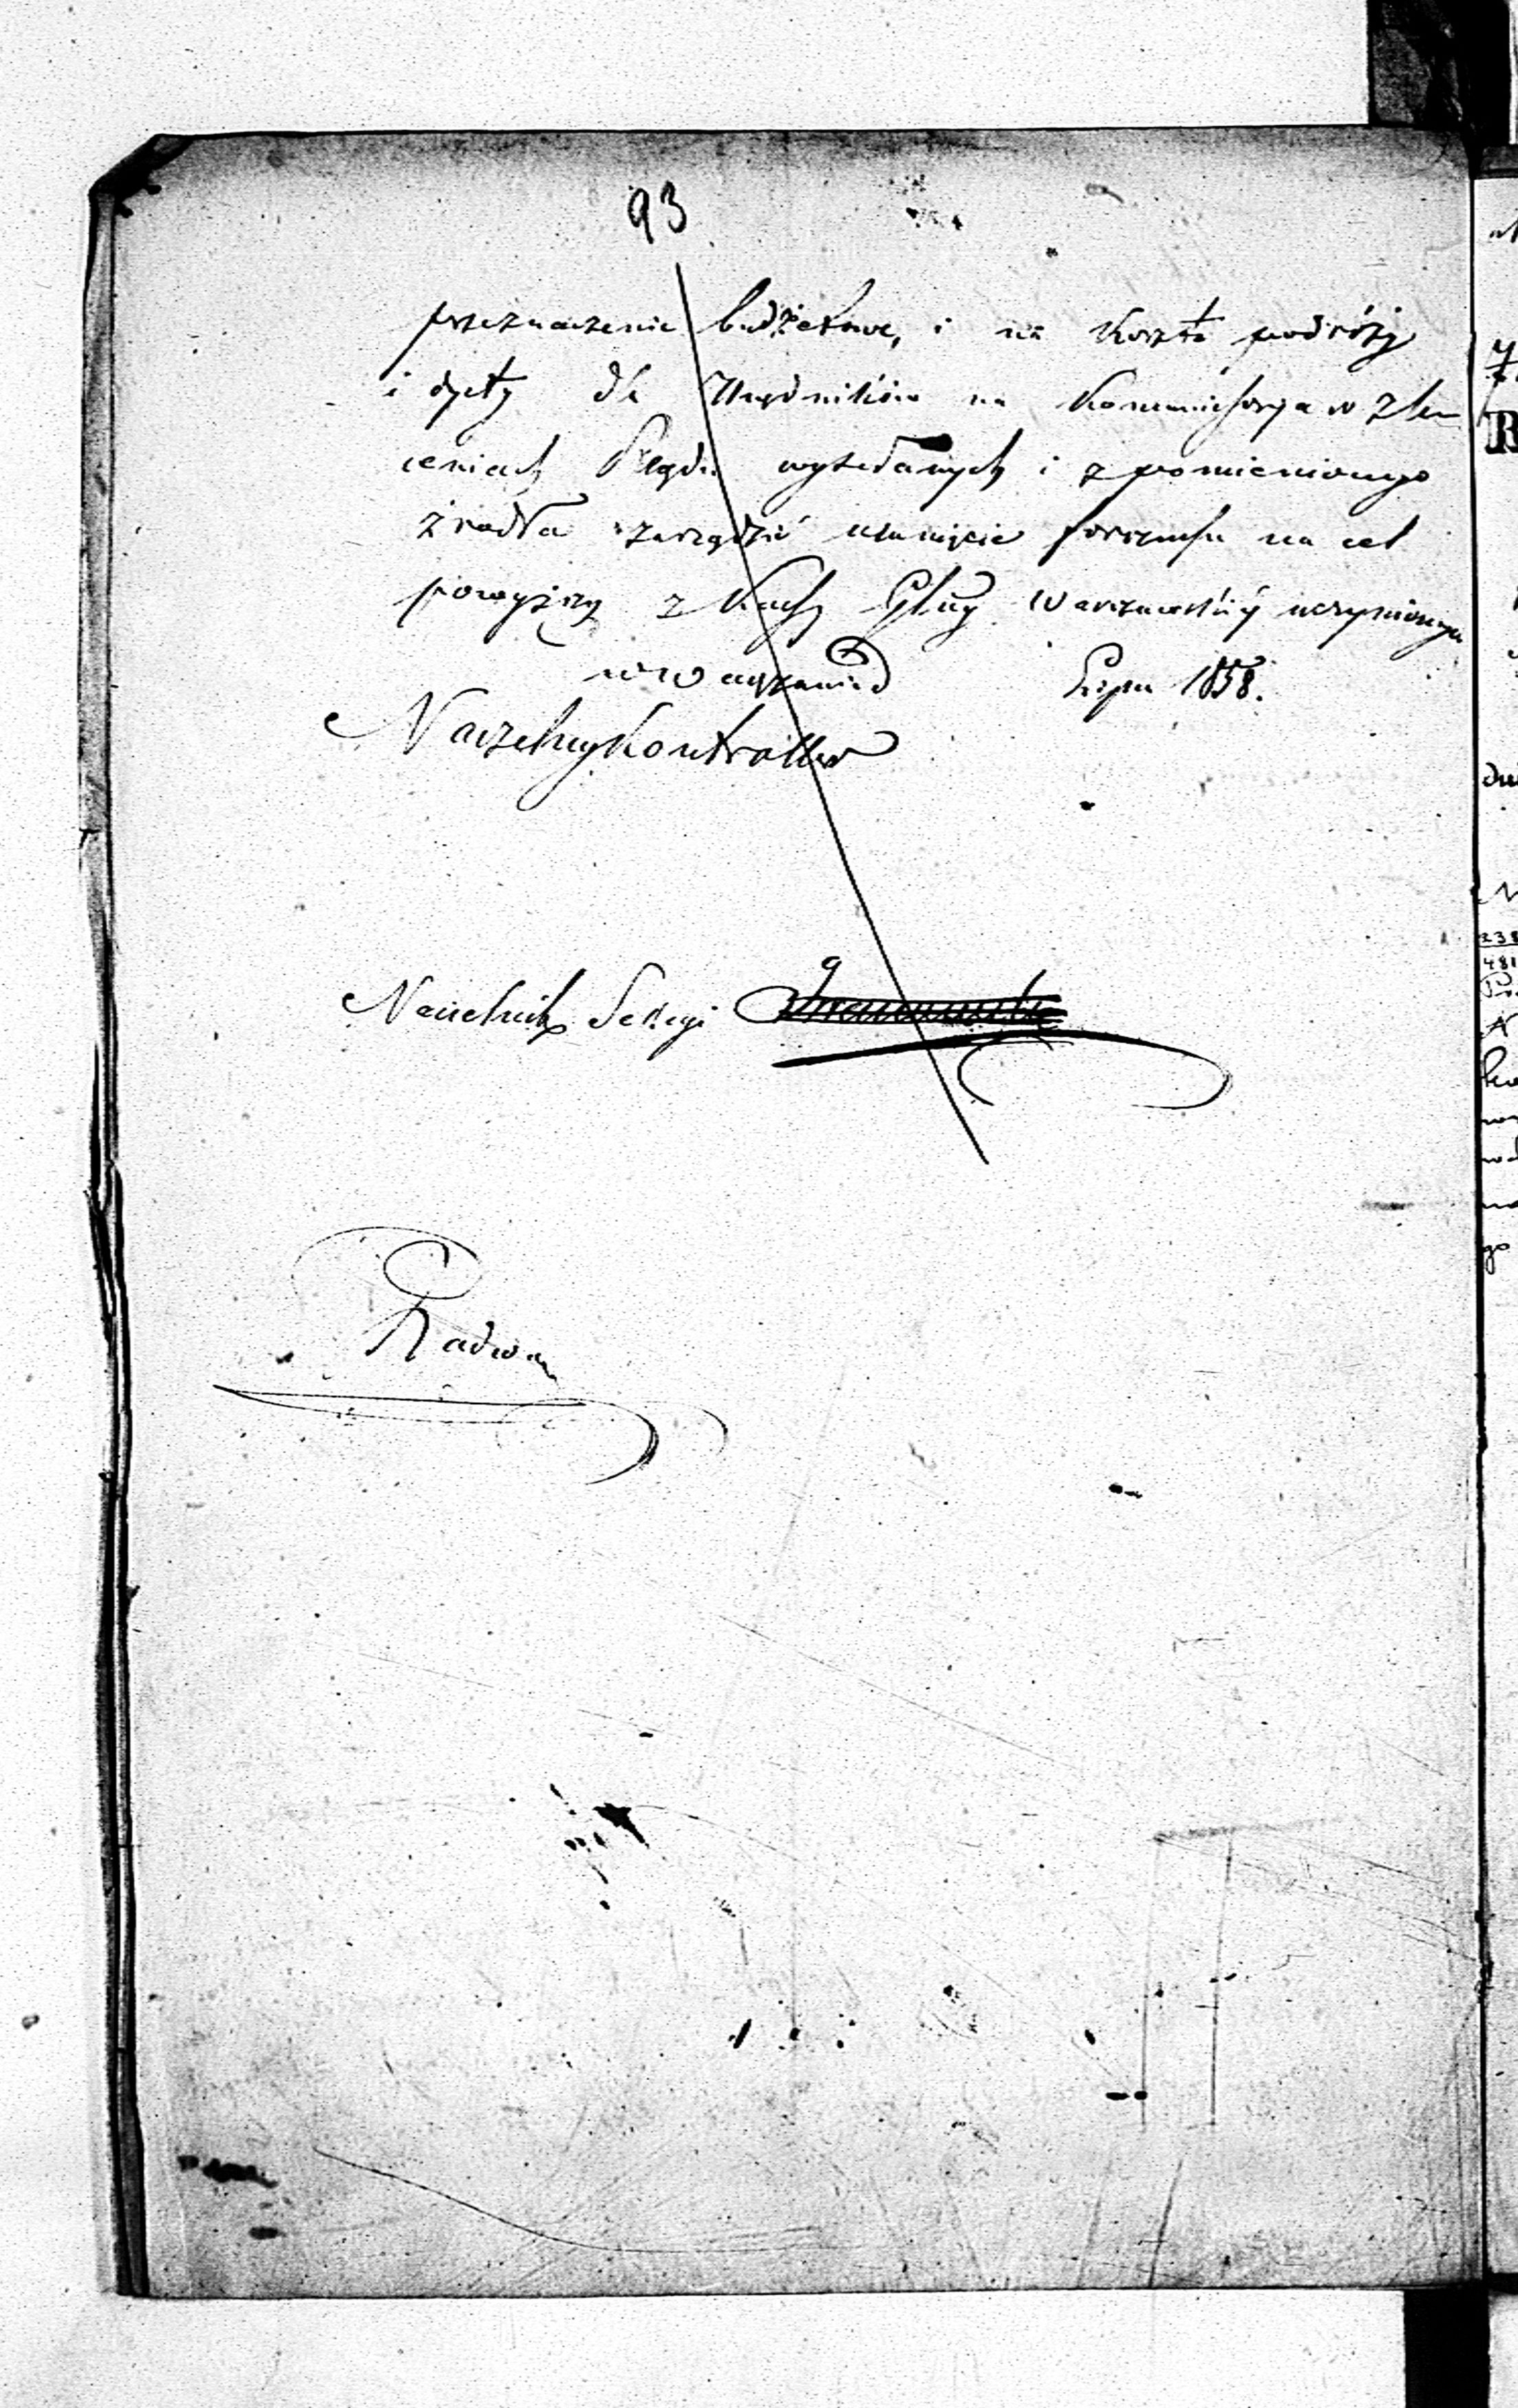 93
przeznaczenie budżetowe, i na koszta podróży
i dyety dla Urzędników na Kommissya w zle
ceniach Rządu wysełanych i z pomienionego
źródła zarządzić usunięcie forszusu na cel
powyższy z Kassy Głów Warszawskiy uczynionego
w Warszawie d Lipca 1858.
Naczelny Kontroller
Naczelnik Sekcyi
Radwan